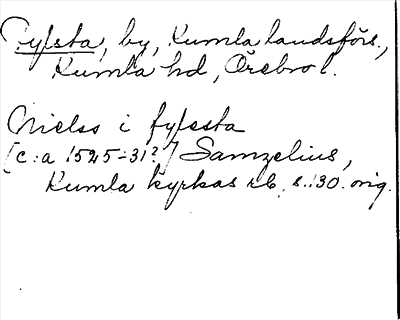 Fylsta, by, Kumla landsförs.,
Kumla hd, Örebro l.
Nielss i fylesta
[c:a 1525-31?] Samzelius,
Kumla kyrkas rb, s. 130. orig.